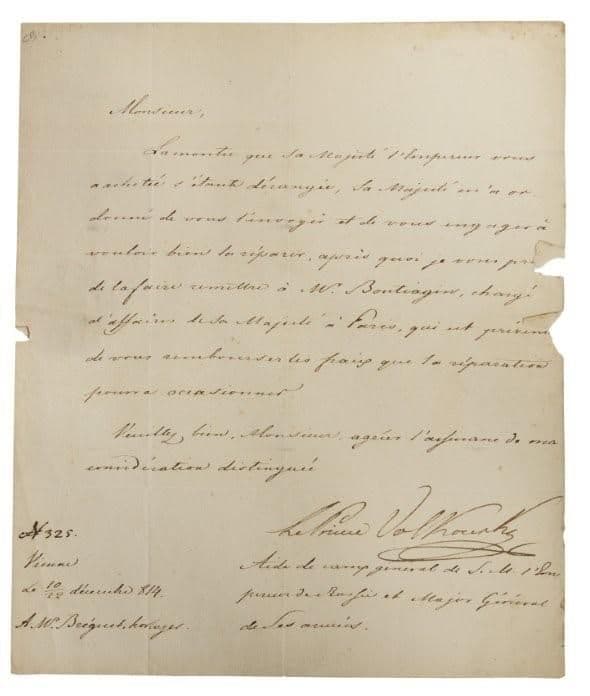 Monsieur,
La montre que Sa Majesté l'Empereur vous
a achetée s'étant dérangée, Sa Majesté m'a or
donné de vous l'envoyer et de vous engager à
vouloir bien la réparer, après quoi je vous pri
de la faire remettre à Mr. Boutiagin, chargé
d'affaires de Sa Majesté à Paris, qui est préven
de vous rembourser les frais que la réparation
pourra occasionner
Veuillez bien, Monsieur, agréer l'assurance de ma
considération distinguée
Le Prince Volkonsky
Aide de camp général de S. M. l'Em
pereur de Russie et Major Général
de Ses armées.
N 325.
Vienne
Le 10/22 décembre 814.
A Mr. Bréguet, horloger